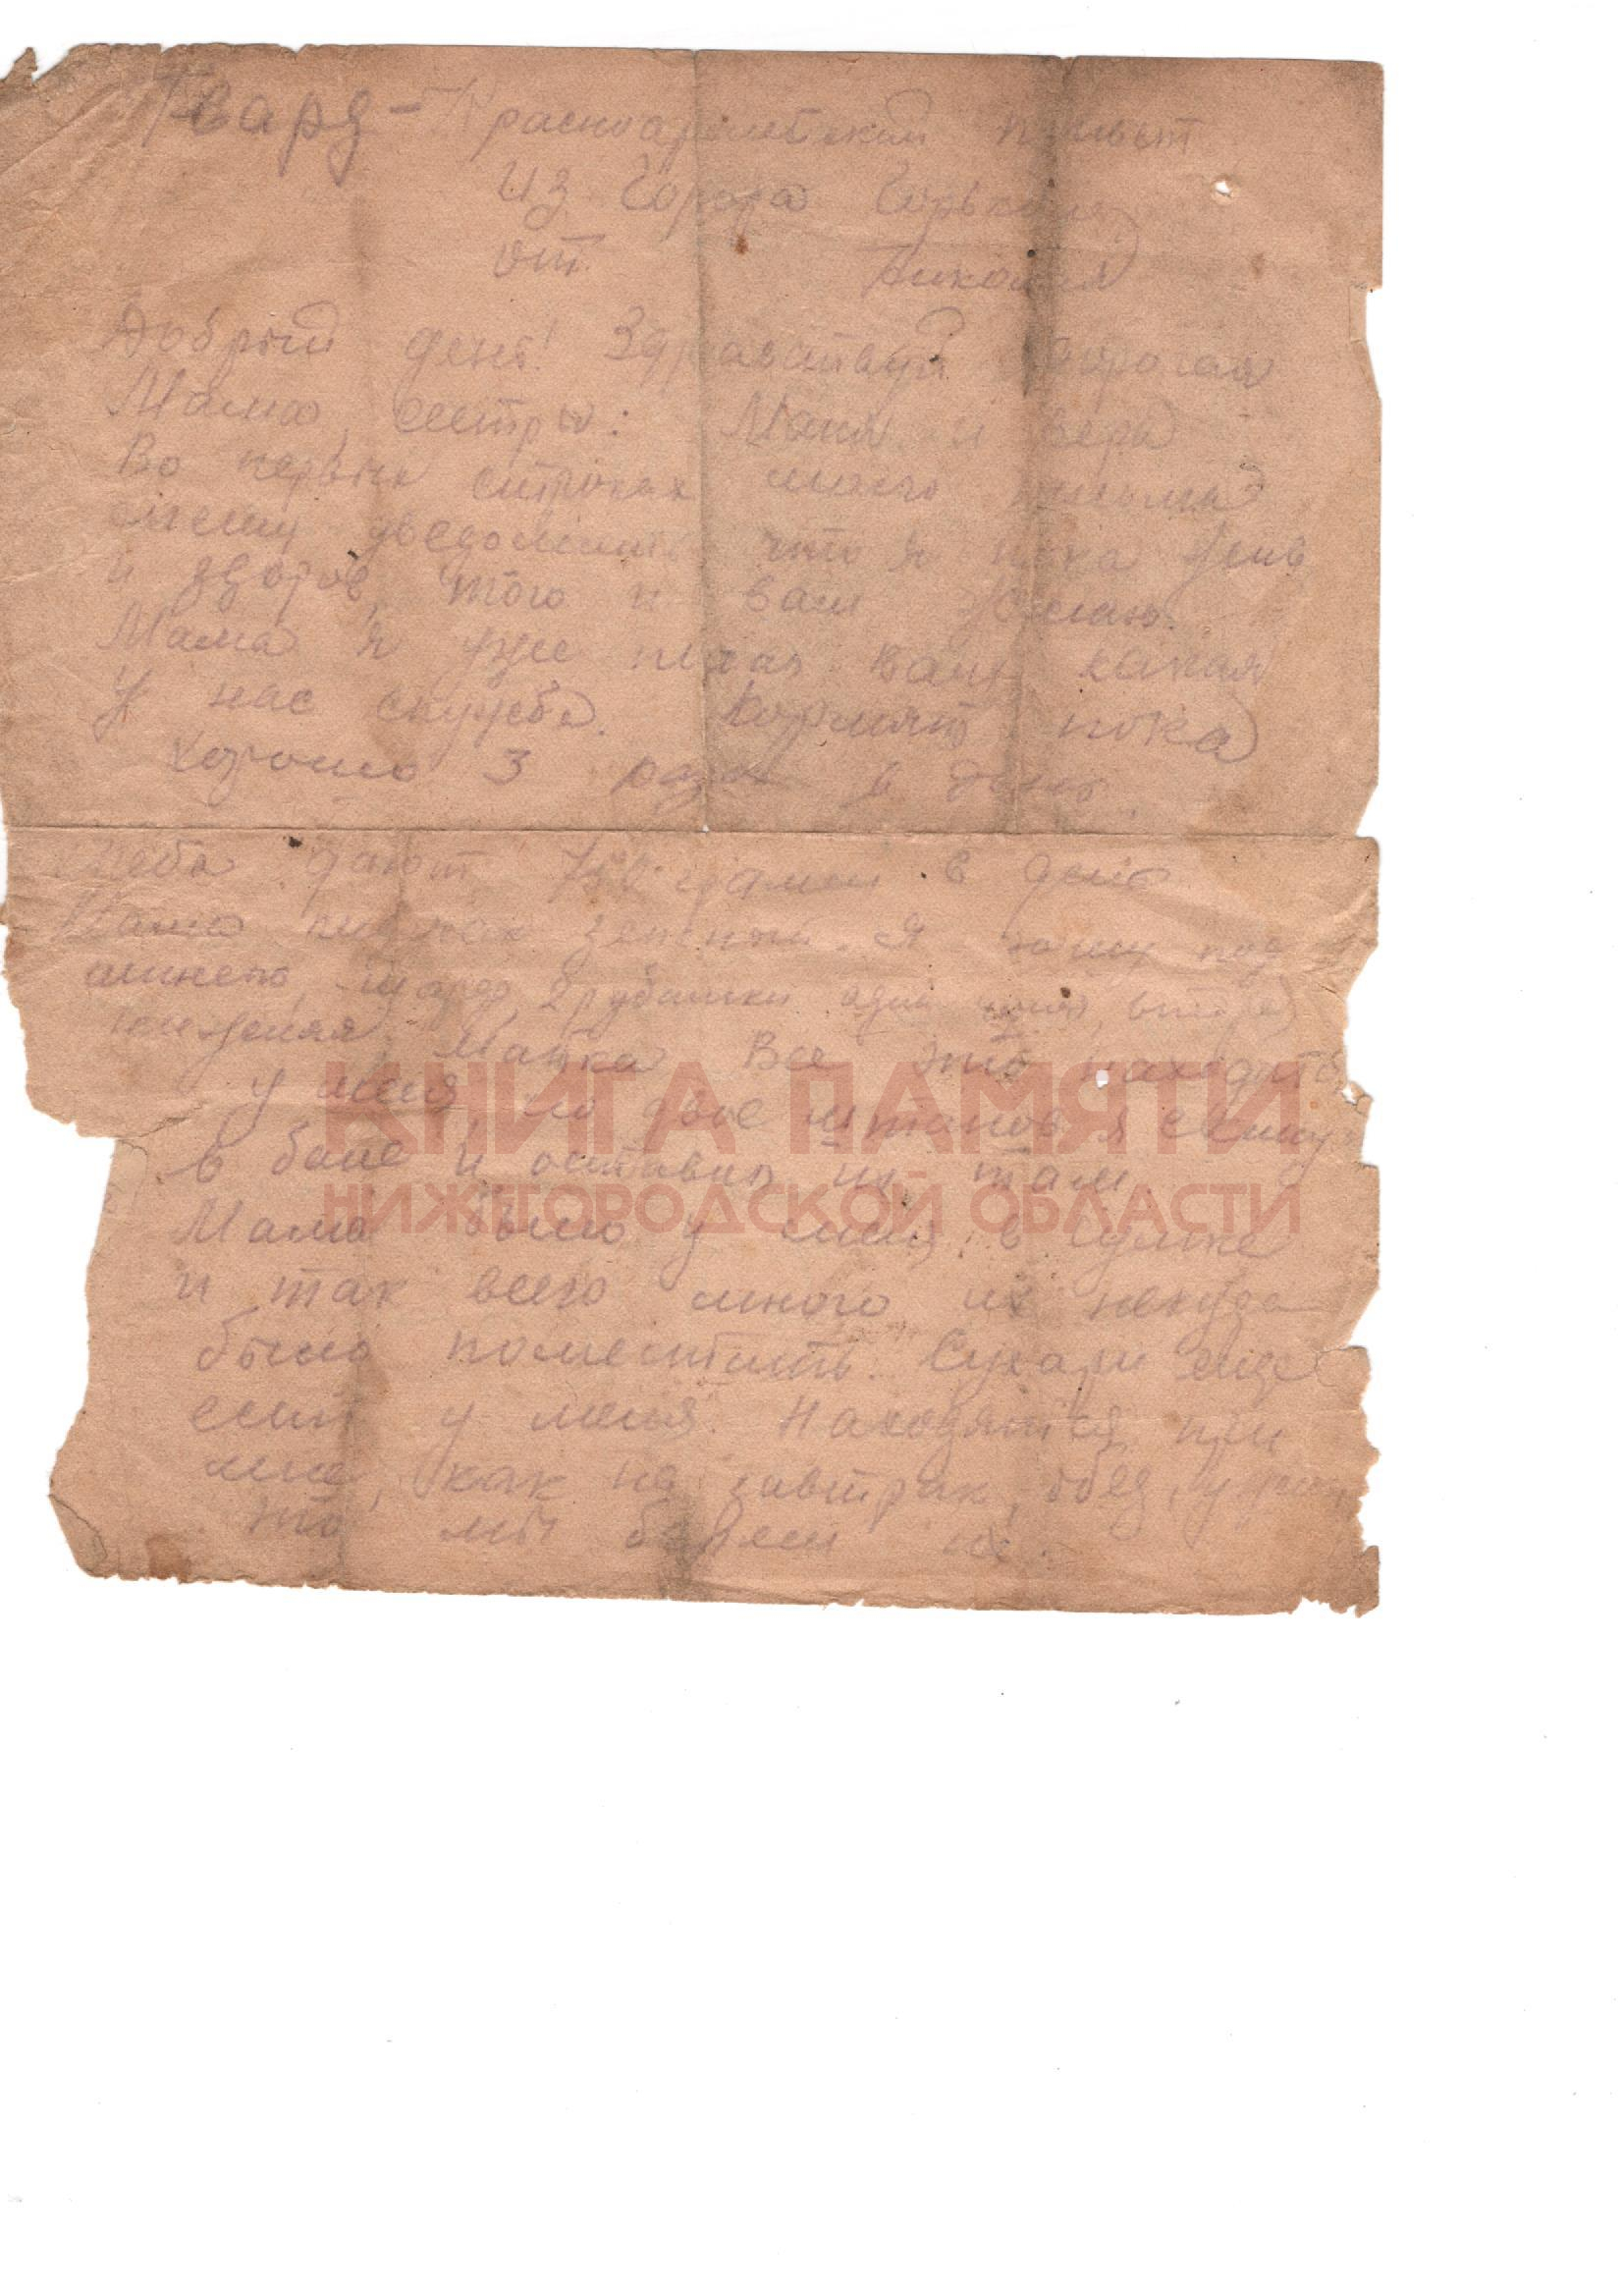 Гвард-Красноармейский привет
Из Города Горького
от Николая
Добрый день! Здравствуй дорогая
Мама, сестры: Маня и Вера
Во первых строках моего письма
спешу уведомить что я пока жив
и здоров, того и вам желаю.
Мама я уже писал вам какая
у нас служба. Кормят пока
хорошо 3 раза в день
Хлеба дают грамм в день
Мама пиджак зеленый я ношу под
шинелью, 2 рубашки одна
Майка Все это находится
у меня, но двое штанов я
в бане и оставил их там
Мама было у меня в сумке
и так всего много их некуда
было поместить. Сухари еще
есть у меня. Находятся при
мне, как на завтрак, обед,
то мы берем их.
КНИГА ПАМЯТИ
НИЖЕГОРОДСКОЙ ОБЛАСТИ